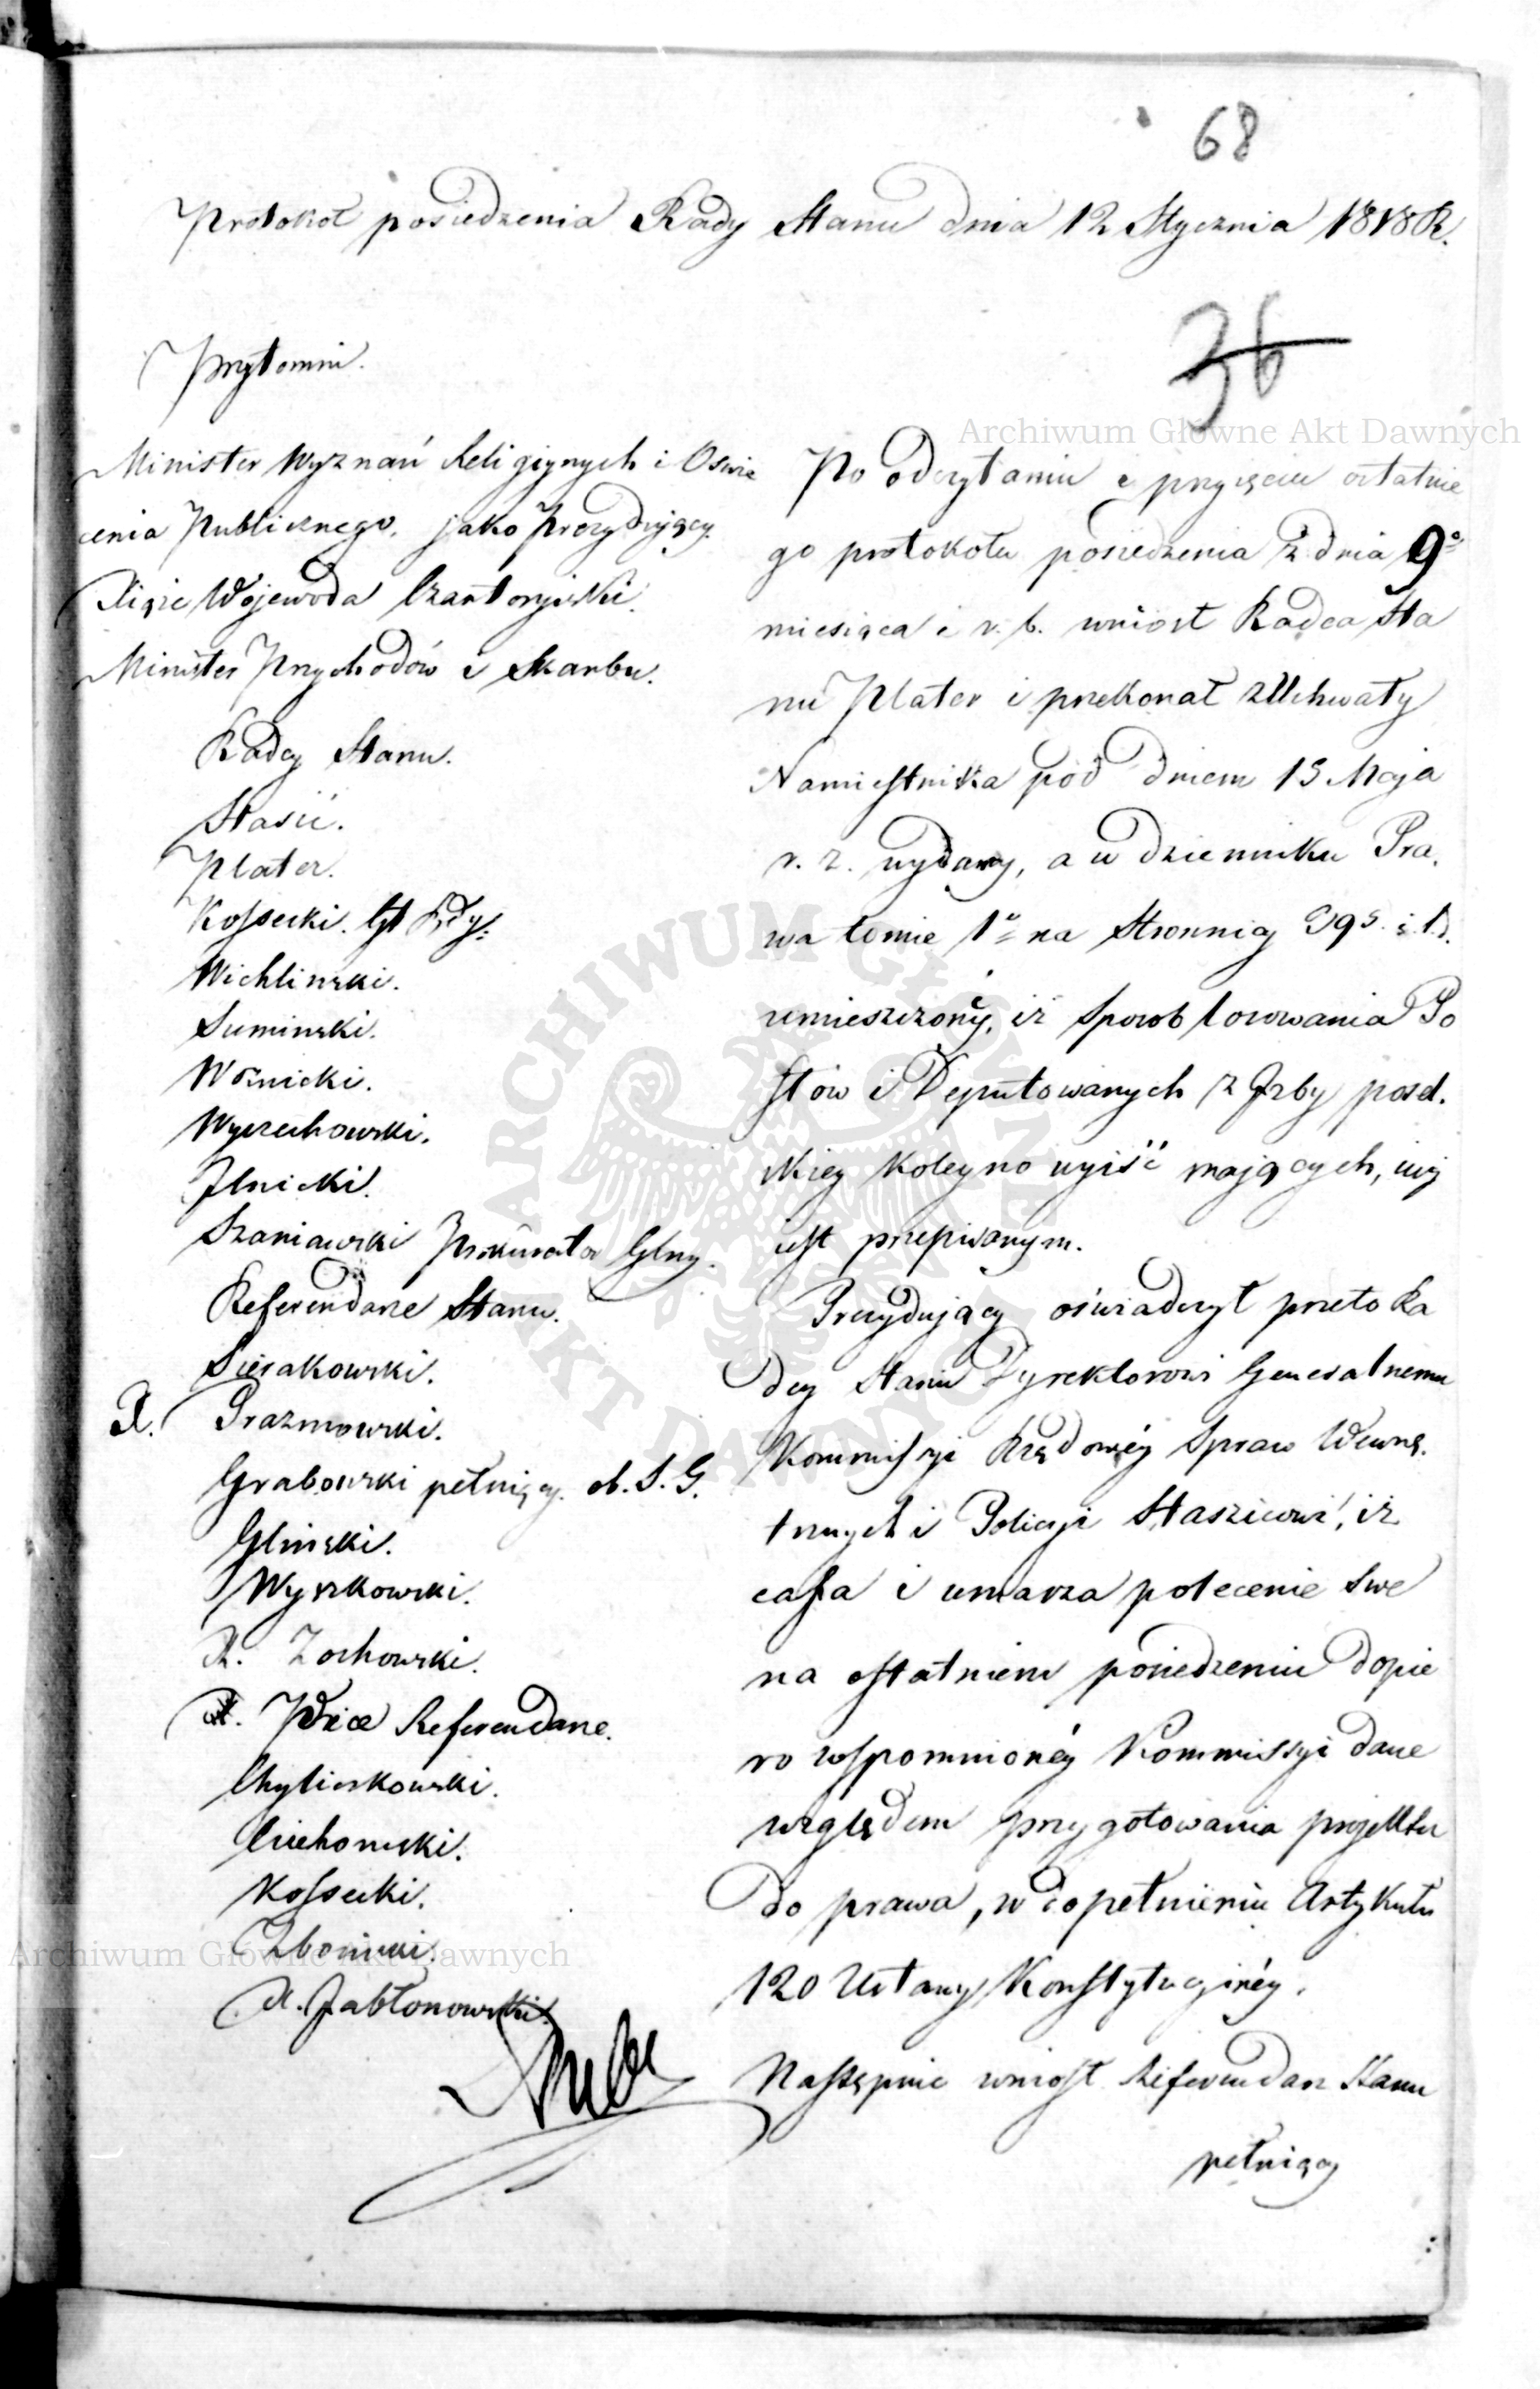 68
Protokoł posiedzenia Rady Stanu dnia 12 Stycznia 1818 R.
36
Przytomni.
Minister Wyznań Religiynych i Oświe
cenia Publicznego, jako Prezydujący.
Xiąże Wojewoda Czartoryiski.
Minister Przychodów i Skarbu.
Radcy Stanu.
Stasic.
Plater.
Kossecki.
Wichlinski.
Suminski.
Woznicki.
Wyczechowski.
Ilnicki.
Szaniawski Prokurator Glny.
Referendarze Stanu.
Sierakowski.
X. Prazmowski.
Grabowski pełniący. ob. S. G.
Glinski.
Wyszkowski.
X. Zochowski.
Vice Referendarze.
Chyliczkowski.
Ciechomski.
Kossecki.
Zboinski.
X. Jabłonowski.
Po odczytaniu i przyięciu ostatnie
go protokołu posiedzenia z dnia 9o
miesiąca i r. b. wniosł Radca Sta
nu Plater i przekonał z Uchwały
Namiestnika pod dniem 13 Maja
r. z. wydaney, a w dzienniku Pra.
wa tomie 1o na Stronnicy 395. i t. d.
umieszczoney, iż Sposob losowania Po
słów i Deputowanych z Izby posel.
skiey koleyno wyiść maiących, iuż
iest przepisanym.
Prezydujący oświadczył przeto Ra
dcy Stanu Dyrektorowi Generalnemu
Kommissyi Rządowéy Spraw Wewnę.
trznych i Policyi Staszicowi, iż
cofa i umarza polecenie Swe
na ostatniem posiedzeniu dopie
ro wspomnionéy Kommissyi dane
względem przygotowania projektu
do prawa, w dopełnieniu Artykułu
120 Ustawy Konstytucyinéy.
Następnie wniosł Referendarz Stanu
pełniący
Archiwum Główne Akt Dawnych
ARCHIWUM GŁÓWNE AKT DAWNYCH
Archiwum Główne Akt Dawnych